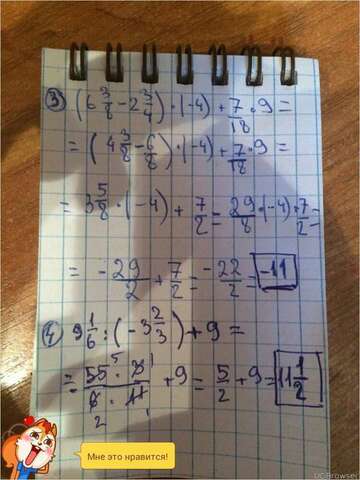 3) (6 3/8 - 2 3/4) · (-4) + 7/18 · 9 =
= (4 3/8 - 6/8) · (-4) + 7/18 · 9 =
= 3 5/8 · (-4) + 7/2 = 29/8 · (-4) + 7/2 =
= - 29/2 + 7/2 = - 22/2 = -11
4) 9 1/6 : (-3 2/3) + 9 =
= - 55 5 · 3 1 / 6 2 · 11 1 + 9 = 5/2 + 9 = 11 1/2
Мне это нравится!
UCBrowser